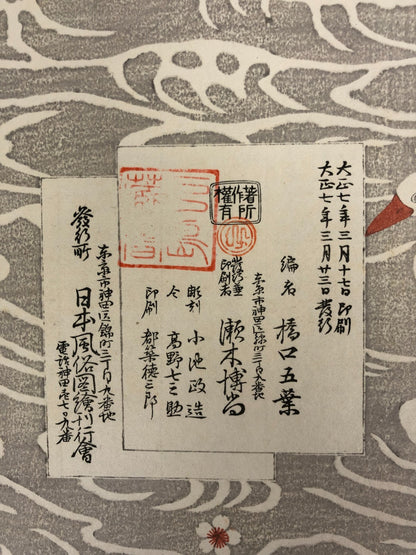 大正七年三月十七日印刷
大正七年三月廿三日発行
編者　橋口五葉
東京市神田区錦町三丁目九番地
発行兼印刷者　瀬木博尚
著作所権有
彫刻　小池政造
仝　高野七之助
印刷　都築徳三郎
東京市神田区錦町三丁目九番地
發行所　日本風俗図繪刊行會